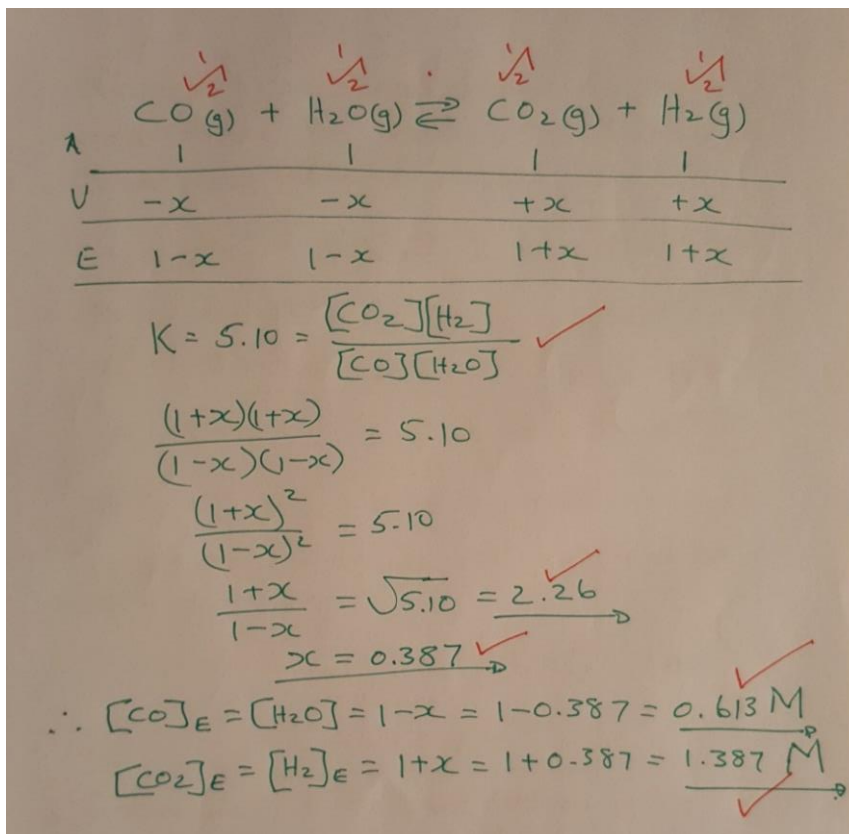 √½ √½ √½ √½
CO(g) + H2O(g) ⇌ CO2(g) + H2(g)
A 1 1 1 1
V -x -x +x +x
E 1-x 1-x 1+x 1+x
K = 5.10 = [CO2][H2] / [CO][H2O] ✓
(1+x)(1+x) / (1-x)(1-x) = 5.10
(1+x)² / (1-x)² = 5.10
1+x / 1-x = √5.10 = 2.26 ✓
x = 0.387 ✓
∴ [CO]E = [H2O] = 1-x = 1-0.387 = 0.613 M ✓
[CO2]E = [H2]E = 1+x = 1+0.387 = 1.387 M ✓